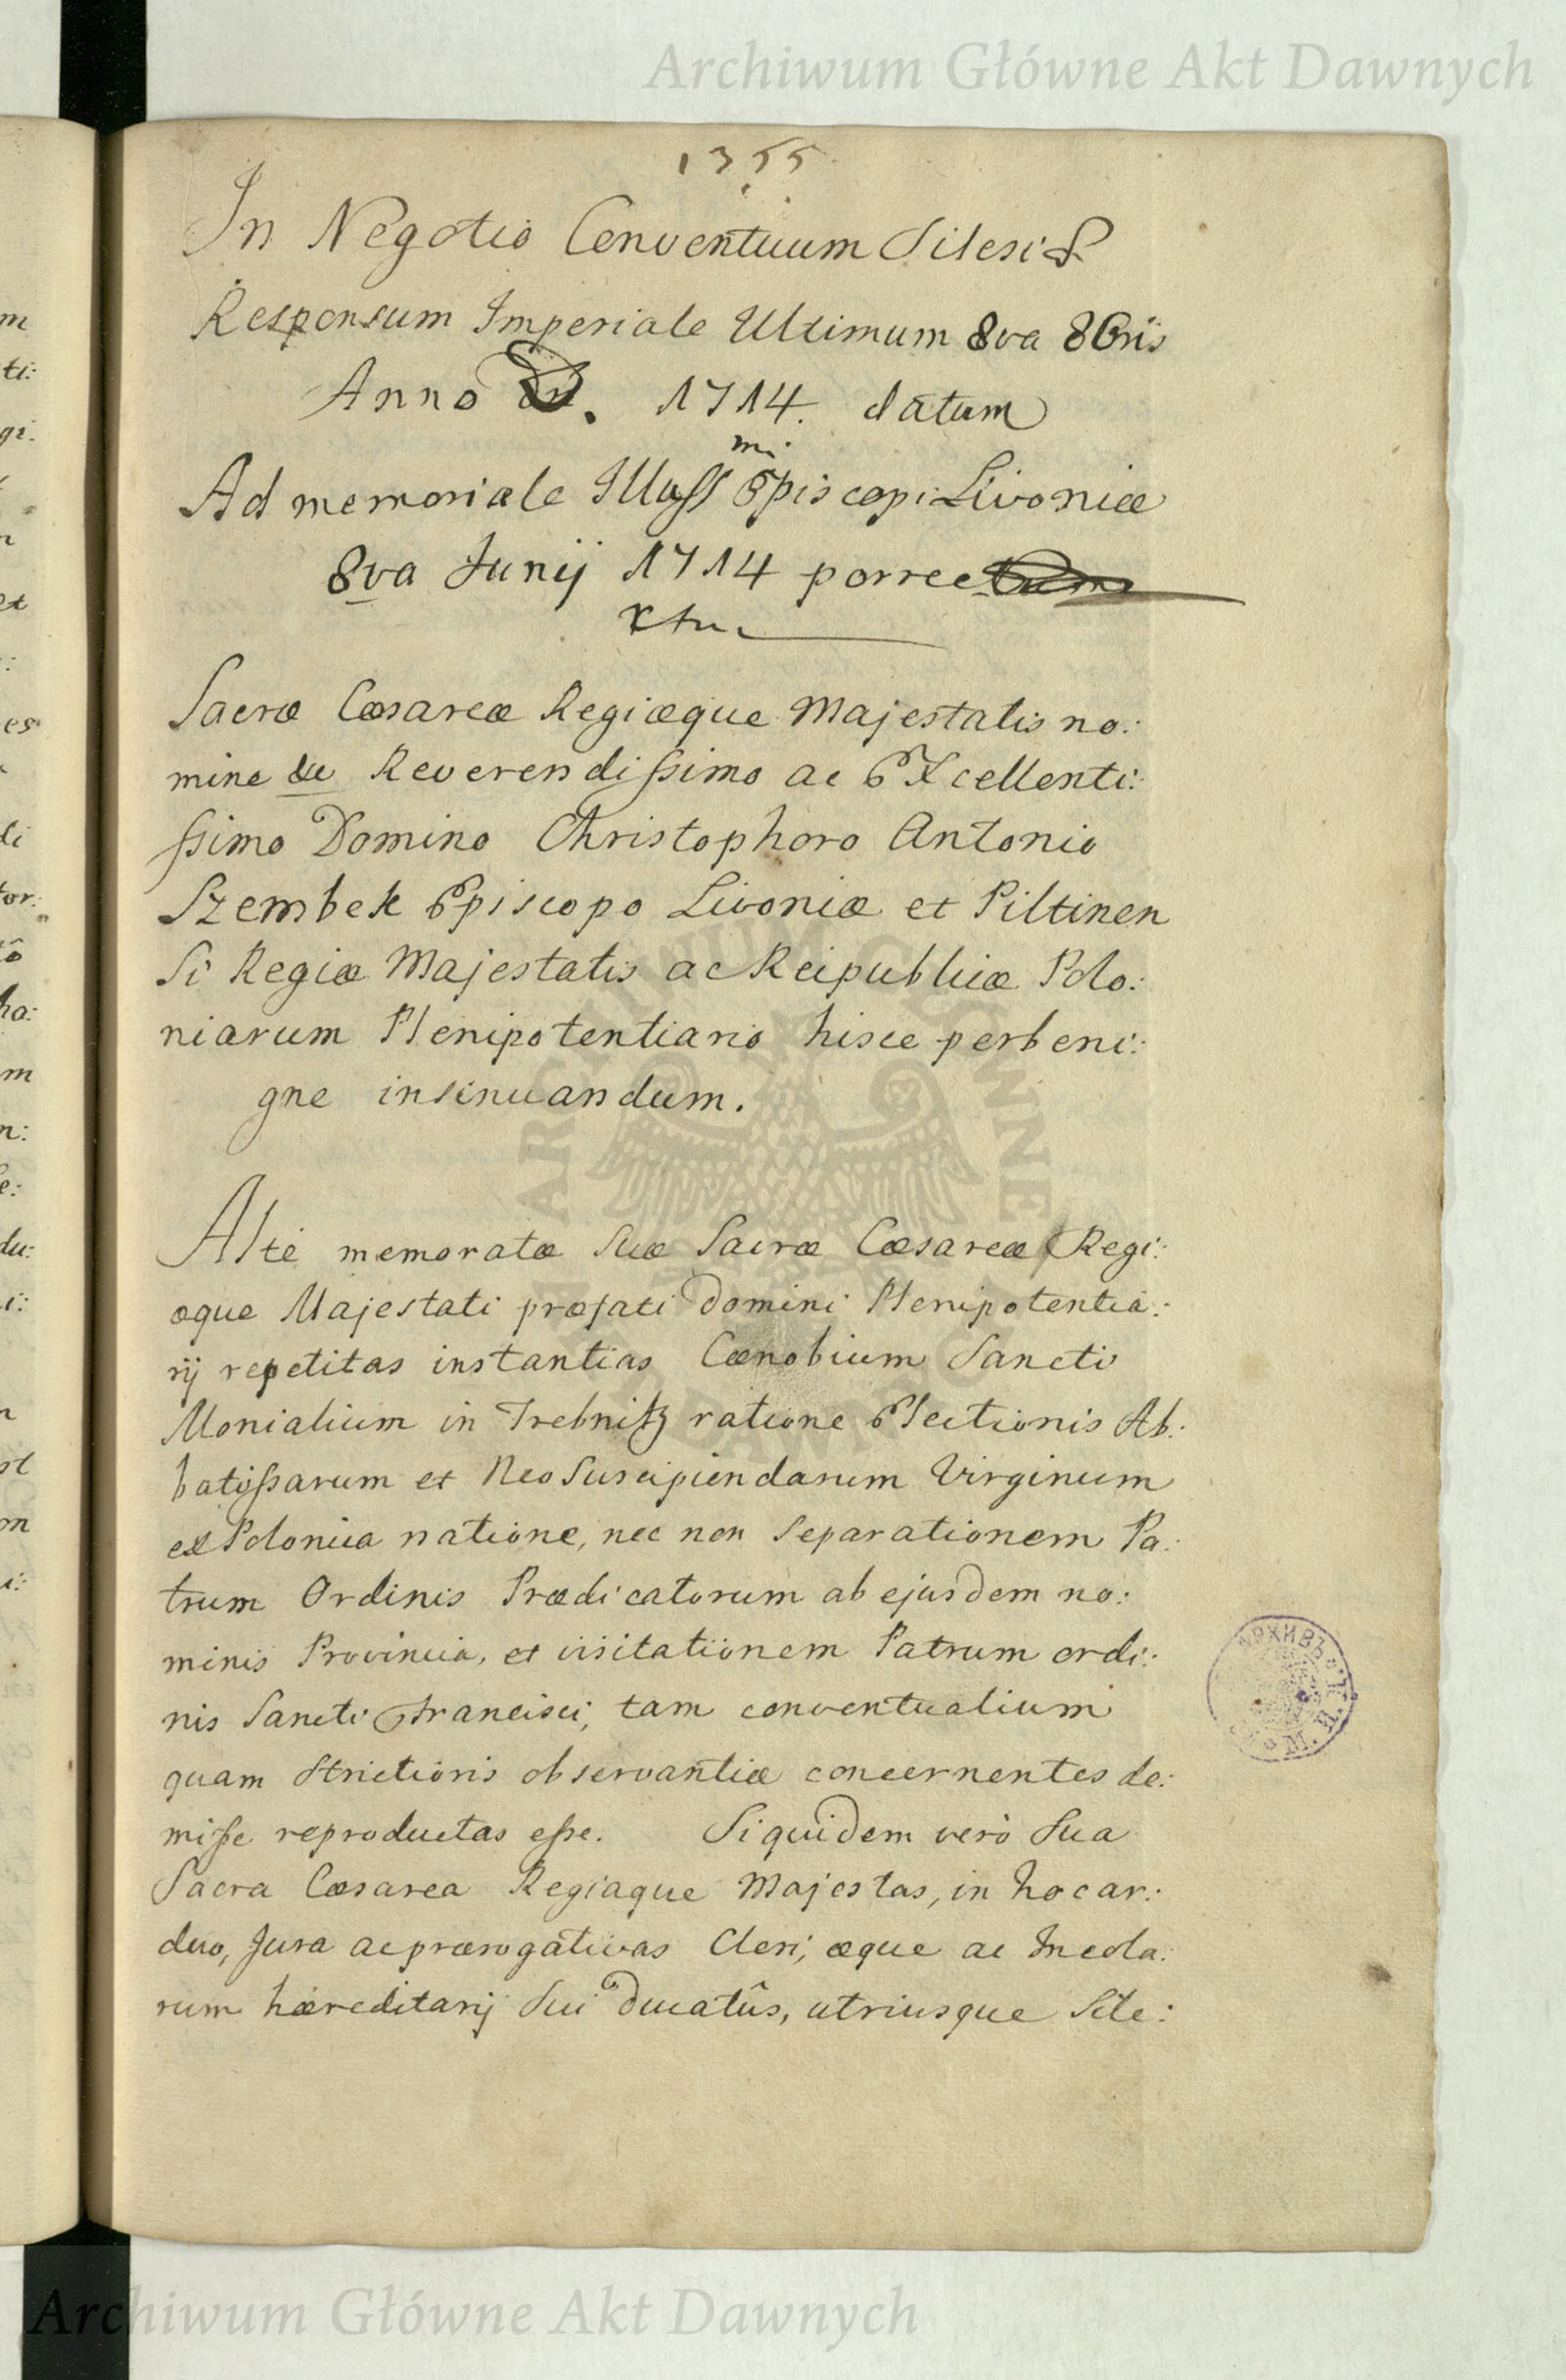 Archiwum Główne Akt Dawnych
1355
In Negotio Conventuum Silesiæ
Responsum Imperiale Ultimum 8va 8bris
Anno D. 1714. datum
Ad memoriale Illuss mi Episcopi Livoniæ
8va Junij 1714 porrec
xtu
Sacræ Cæsareæ Regiæque Majestatis no:
mine Reverendissimo ac Excellenti:
ssimo Domino Christophoro Antonio
Szembek Episcopo Livoniæ et Piltinen
si Regiæ Majestatis ac Reipublicæ Polo:
niarum Plenipotentiario hisce perbeni:
gne insinuandum.
Altè memoratæ Suæ Sacræ Cæsareæ Regi:
æque Majestati præfati Domini Plenipotentia:
rij repetitas instantias Cænobium Sancti
Monialium in Trebnitz ratione Electionis Ab:
batissarum et Neo Suscipiendarum Virginum
ex Polonica natione, nec non Separationem Pa:
trum Ordinis Prædicatorum ab ejusdem no:
minis Provincia, et visitationem Patrum ordi:
nis Sancti Francisci, tam conventualium
quam strictioris observantiæ concernentes de:
misse reproductas esse. Siquidem verò Sua
Sacra Cæsarea Regiaque Majestas, in hoc ar:
duo, Jura ac prærogativas Cleri, æque ac Incola:
rum hæreditarij Sui Ducatûs, utriusque Sile:
АРХИВЪ
Archiwum Główne Akt Dawnych